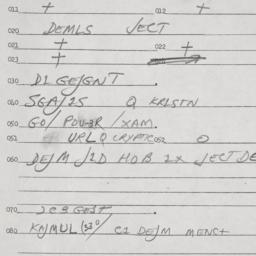 011 + 012 +
020 DEMLS JECT
021 +
022 +
023 +
030 D1 GEJGNT .
040 SGA/2S Q KRLSTN
050 GO/ POWER /XAM.
051 URLQ CRYPTC 052 O
060 DEJM J1D HOB 2X JECT DE
070 2C9 GEST, .
080 KNJMUL (S20/ C1 DEJM MENST